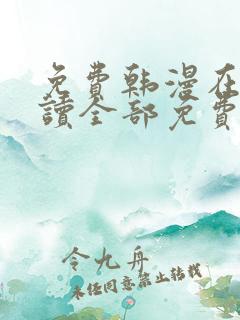 免费韩漫在
讀全部免费
令九舟
未经同意禁止转载